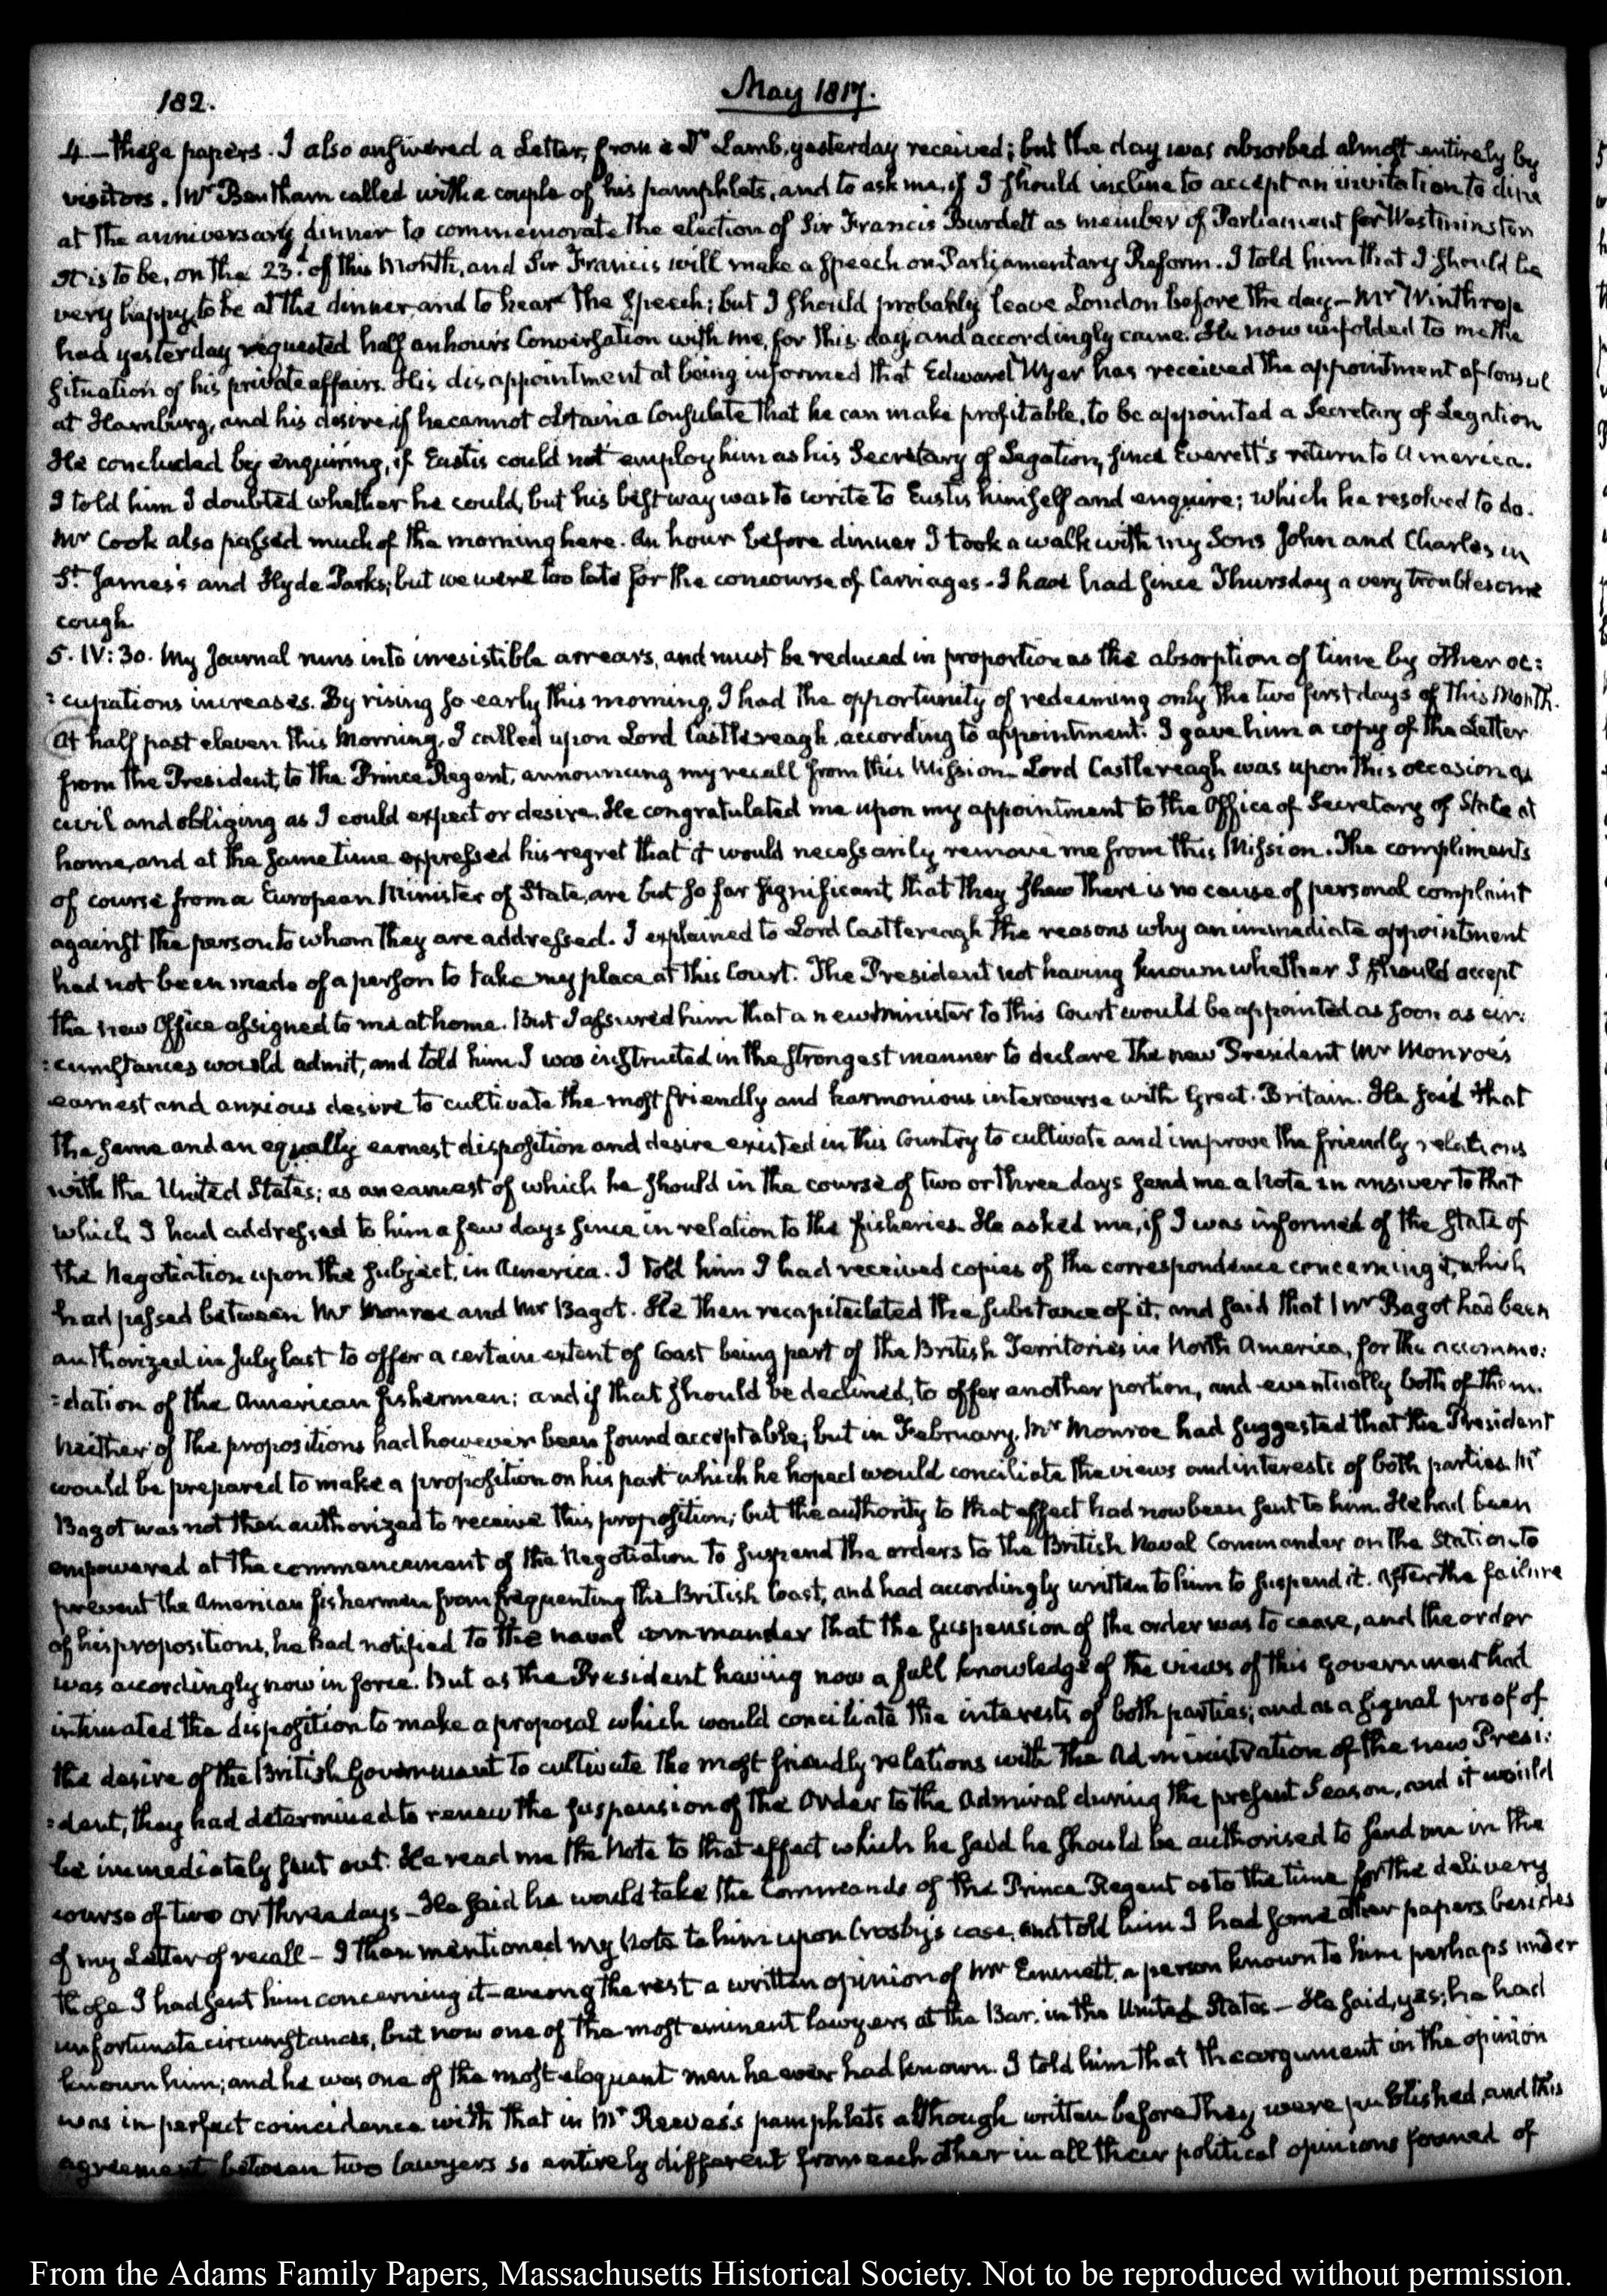 182.
May 1817.
4.— these papers. I also answered a Letter, from a Dr Lamb, yesterday received; but the day was absorbed almost entirely by
visitors. Mr Bentham called with a couple of his pamphlets, and to ask me, if I should incline to accept an invitation to dine
at the anniversary dinner to commemorate the election of Sir Francis Burdett as member of Parliament for Westminster
It is to be, on the 23.d of this Month, and Sir Francis will make a speech on Parliamentary Reform. I told him that I should be
very happy to be at the dinner and to hear the speech; but I should probably leave London before the day— Mr Winthrop
had yesterday requested half an hour's Conversation with me, for this day, and accordingly came. He now unfolded to me the
situation of his private affairs. His disappointment at being informed that Edward Wyer has received the appointment of Consul
at Hamburg, and his desire, if he cannot obtain a Consulate that he can make profitable, to be appointed a Secretary of Legation
He concluded by enquiring, if Eustis could not employ him as his Secretary of Legation, since Everett's return to America.
I told him I doubted whether he could, but his best way was to write to Eustis himself and enquire; which he resolved to do.
Mr Cook also passed much of the morning here. An hour before dinner I took a walk with my Sons John and Charles in
St. James's and Hyde Parks; but we were too late for the concourse of Carriages. I have had since Thursday a very troublesome
cough.
5. IV: 30. My Journal runs into irresistible arrears, and must be reduced in proportion as the absorption of time by other oc:
:cupations increases. By rising so early this morning, I had the opportunity of redeeming only the two first days of this Month.
At half past eleven this Morning, I called upon Lord Castlereagh, according to appointment. I gave him a copy of the Letter
from the President, to the Prince Regent, announcing my recall from this Mission. Lord Castlereagh was upon this occasion as
civil and obliging as I could expect or desire. He congratulated me upon my appointment to the Office of Secretary of State at
home, and at the same time expressed his regret that it would necessarily remove me from this Mission. The compliments
of course from a European Minister of State, are but so far significant, that they shew there is no cause of personal complaint
against the person to whom they are addressed. I explained to Lord Castlereagh the reasons why an immediate appointment
had not been made of a person to take my place at this Court. The President not having known whether I should accept
the new Office assigned to me at home. But I assured him that a new Minister to this Court would be appointed as soon as cir:
:cumstances would admit, and told him I was instructed in the strongest manner to declare the new President Mr Monroe's
earnest and anxious desire to cultivate the most friendly and harmonious intercourse with Great-Britain. He said that
the same and an equally earnest disposition and desire existed in this Country to cultivate and improve the friendly relations
with the United States; as an earnest of which he should in the course of two or three days send me a Note in answer to that
which I had addressed to him a few days since in relation to the fisheries. He asked me, if I was informed of the state of
the Negotiation upon the subject, in America. I told him I had received copies of the correspondence concerning it, which
had passed between Mr Monroe and Mr Bagot. He then recapitulated the substance of it, and said that Mr Bagot had been
authorized in July last to offer a certain extent of Coast being part of the British Territories in North America, for the accommo:
:dation of the American fishermen; and if that should be declined, to offer another portion, and eventually both of them.
Neither of the propositions had however been found acceptable; but in February, Mr Monroe had suggested that the President
would be prepared to make a proposition on his part which he hoped would conciliate the views and interests of both parties. Mr
Bagot was not then authorized to receive this proposition; but the authority to that effect had now been sent to him. He had been
empowered at the commencement of the Negotiation to suspend the orders to the British Naval Commander on the Station to
prevent the American fishermen from frequenting the British Coast, and had accordingly written to him to suspend it. After the failure
of his propositions, he had notified to the naval commander that the suspension of the order was to cease, and the order
was accordingly now in force. But as the President having now a full knowledge of the views of this Government had
intimated the disposition to make a proposal which would conciliate the interests of both parties; and as a signal proof of
the desire of the British Government to cultivate the most friendly relations with the Administration of the new Presi:
:dent, they had determined to renew the suspension of the Order to the Admiral during the present Season, and it would
be immediately sent out. He read me the Note to that effect which he said he should be authorised to send me in the
course of two or three days— He said he would take the Commands of the Prince Regent as to the time for the delivery
of my Letter of recall— I then mentioned my Note to him upon Crosby's case, and told him I had some other papers besides
those I had sent him concerning it— among the rest a written opinion of Mr Emmett, a person known to him perhaps under
unfortunate circumstances, but now one of the most eminent lawyers at the Bar, in the United States— He said, yes; he had
known him; and he was one of the most eloquent men he ever had known. I told him that the argument in the opinion
was in perfect coincidence with that in Mr Reeves's pamphlets although written before they were published, and this
agreement between two lawyers so entirely different from each other in all their political opinions formed of
From the Adams Family Papers, Massachusetts Historical Society. Not to be reproduced without permission.